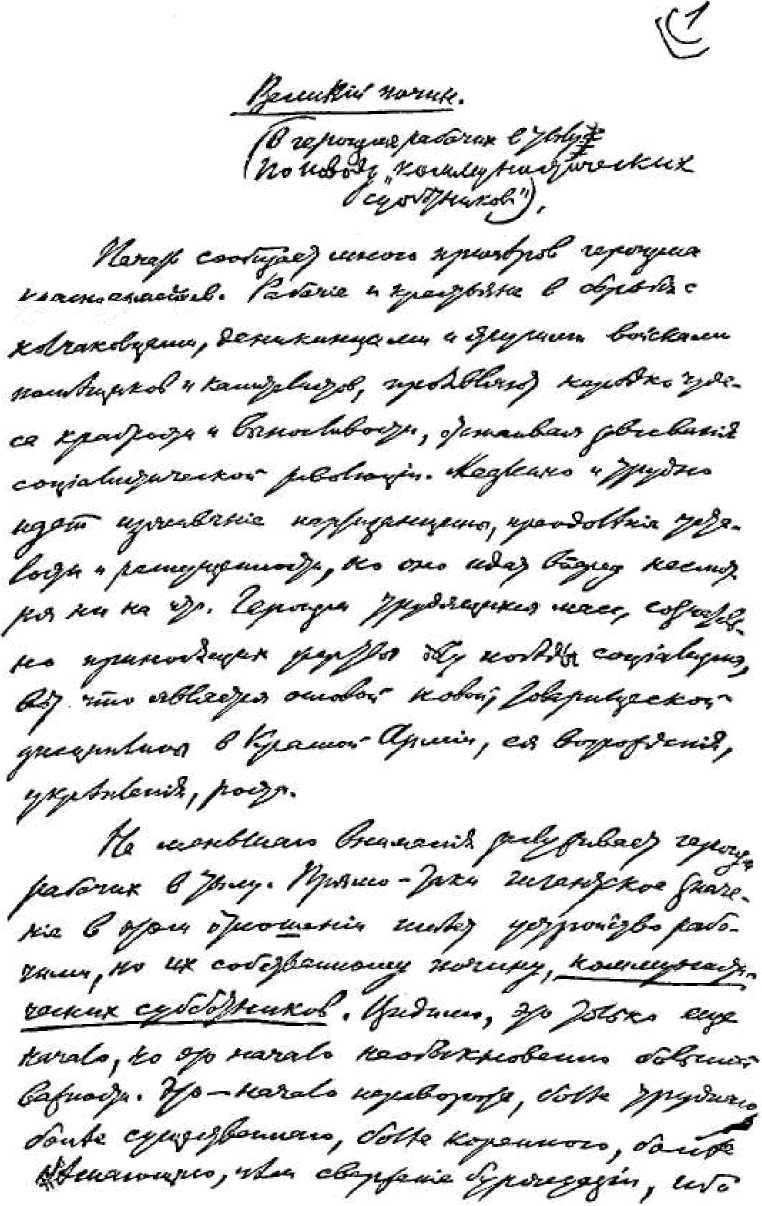 1
Великій почин.
(О героизме рабочих в тылу.
По поводу „коммунистических
субботников"),
Печать сообщает много примѣров героизма
красноармейцев. Рабочіе и крестьяне в борьбѣ с
колчаковцами, деникинцами и другими войсками
помѣщиков и капиталистов, проявляют нерѣдко чуде-
са храбрости и выносливости, отстаивая завоеванія
соціалистической революціи. Медленно и трудно
идет изживаніе партизанщины, преодолѣніе уста-
лости и распущенности, но оно идет вперед несмот-
ря ни на что. Героизм трудящихся масс, сознатель-
но приносящих жертвы дѣлу побѣды соціализма,
вот что является основой новой, товарищеской
дисциплины в Красной Арміи, ея возрожденія,
укрѣпленія, роста.
Не меньшаго вниманія заслуживает героизм
рабочих в тылу. Прямо-таки гигантское значе-
ніе в этом отношеніи имѣет устройство рабо-
чими, по их собственному почину, коммунисти-
ческих субботников. Видимо, это только еще
начало, но это начало необыкновенно большой
важности. Это — начало переворота, болѣе труднаго,
болѣе существеннаго, болѣе кореннаго, болѣе
рѣшающаго, чѣм сверженіе буржуазіи, ибо